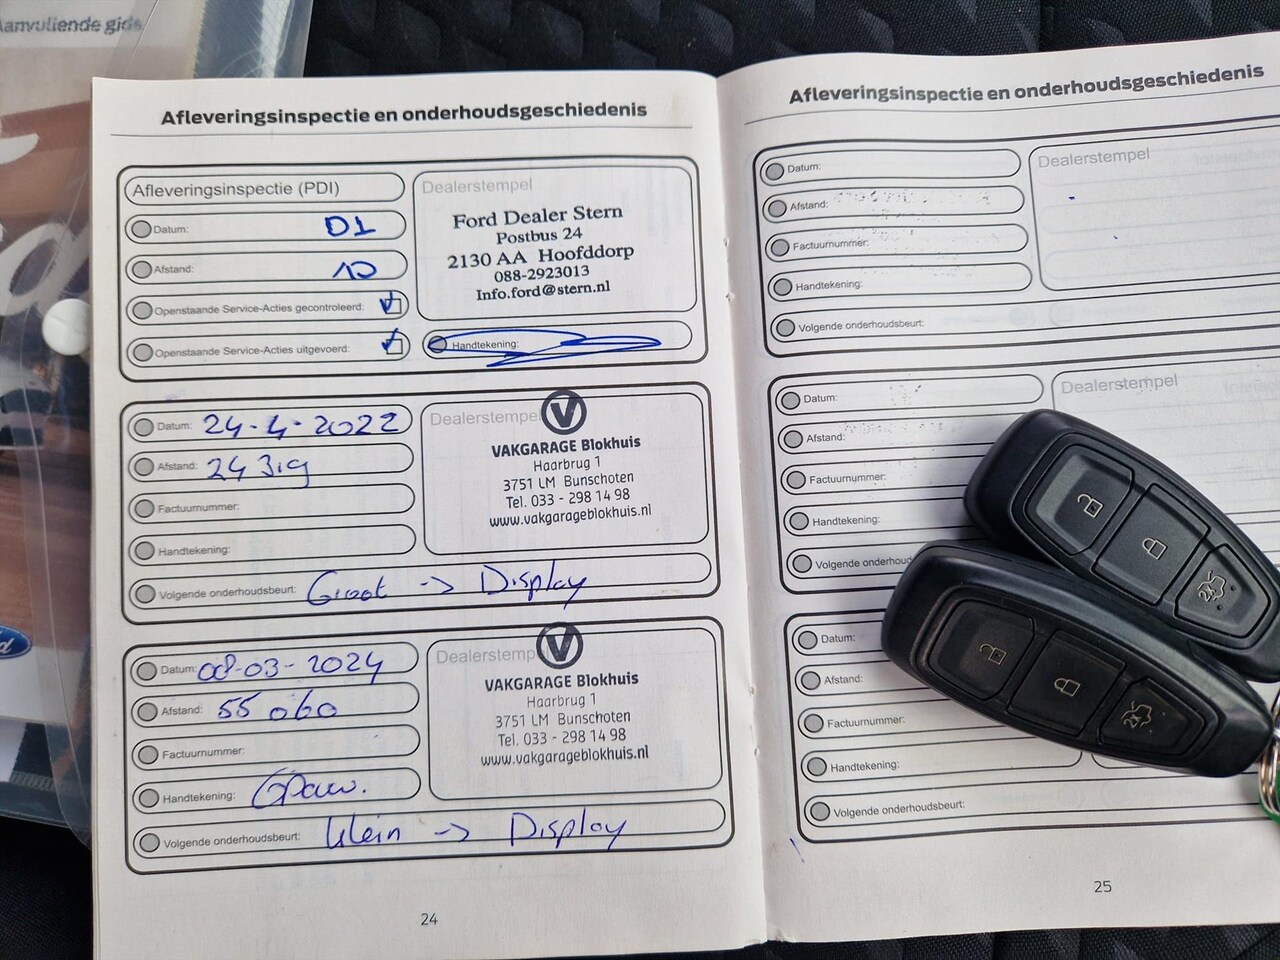 Aanvullende gids
Afleveringsinspectie en onderhoudsgeschiedenis
Afleveringsinspectie (PDI)
Datum: D1
Afstand: 10
Openstaande Service-Acties gecontroleerd:
Openstaande Service-Acties uitgevoerd:
Dealerstempel
Ford Dealer Stern
Postbus 24
2130 AA Hoofddorp
088-2923013
Info.ford@stern.nl
Handtekening:
Datum: 24-4-2022
Afstand: 24 319
Factuurnummer:
Handtekening:
Volgende onderhoudsbeurt: Groot -> Display
Dealerstempel
V
VAKGARAGE Blokhuis
Haarbrug 1
3751 LM Bunschoten
Tel. 033 - 298 14 98
www.vakgarageblokhuis.nl
Datum: 08-03-2024
Afstand: 55 060
Factuurnummer:
Handtekening:
Volgende onderhoudsbeurt: Klein -> Display
Dealerstemp
V
VAKGARAGE Blokhuis
Haarbrug 1
3751 LM Bunschoten
Tel. 033 - 298 14 98
www.vakgarageblokhuis.nl
24
Afleveringsinspectie en onderhoudsgeschiedenis
Datum:
Afstand:
Factuurnummer:
Handtekening:
Volgende onderhoudsbeurt:
Dealerstempel
Datum:
Afstand:
Factuurnummer:
Handtekening:
Volgende onderhoud
Dealerstempel
Datum:
Afstand:
Factuurnummer:
Handtekening:
Volgende onderhoudsbeurt:
25